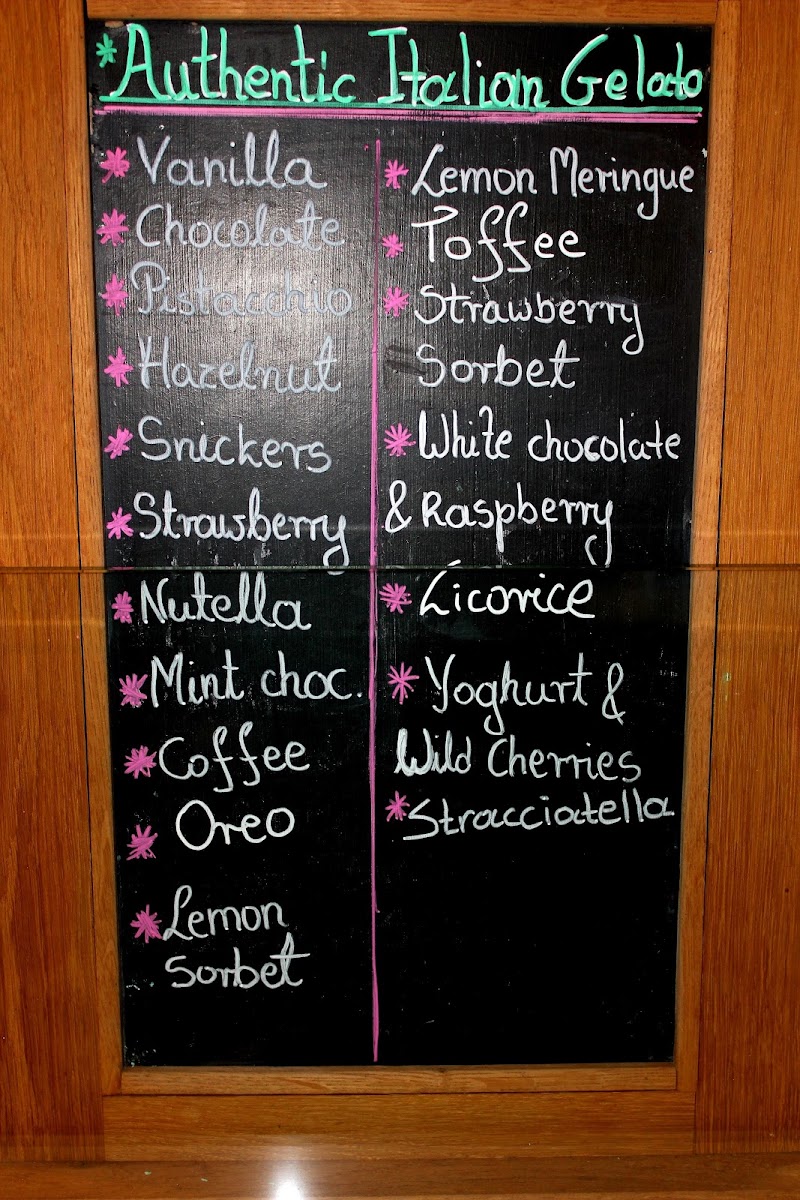 *Authentic Italian Gelato
*Vanilla
*Chocolate
*Pistacchio
*Hazelnut
*Snickers
*Strawberry
*Nutella
*Mint choc.
*Coffee
*Oreo
*Lemon
Sorbet
*Lemon Meringue
*Toffee
*Strawberry
Sorbet
*White chocolate
& Raspberry
*Licorice
*Yoghurt &
Wild Cherries
*Stracciatella